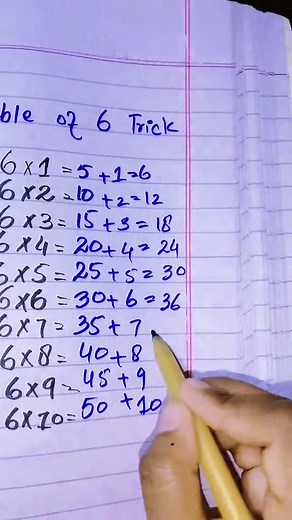 ble of 6 Trick
6×1=5+1=6
6×2=10+2=12
6×3=15+3=18
6×4=20+4=24
6×5=25+5=30
6×6=30+6=36
6×7=35+7
6×8=40+8
6×9=45+9
6×10=50+10